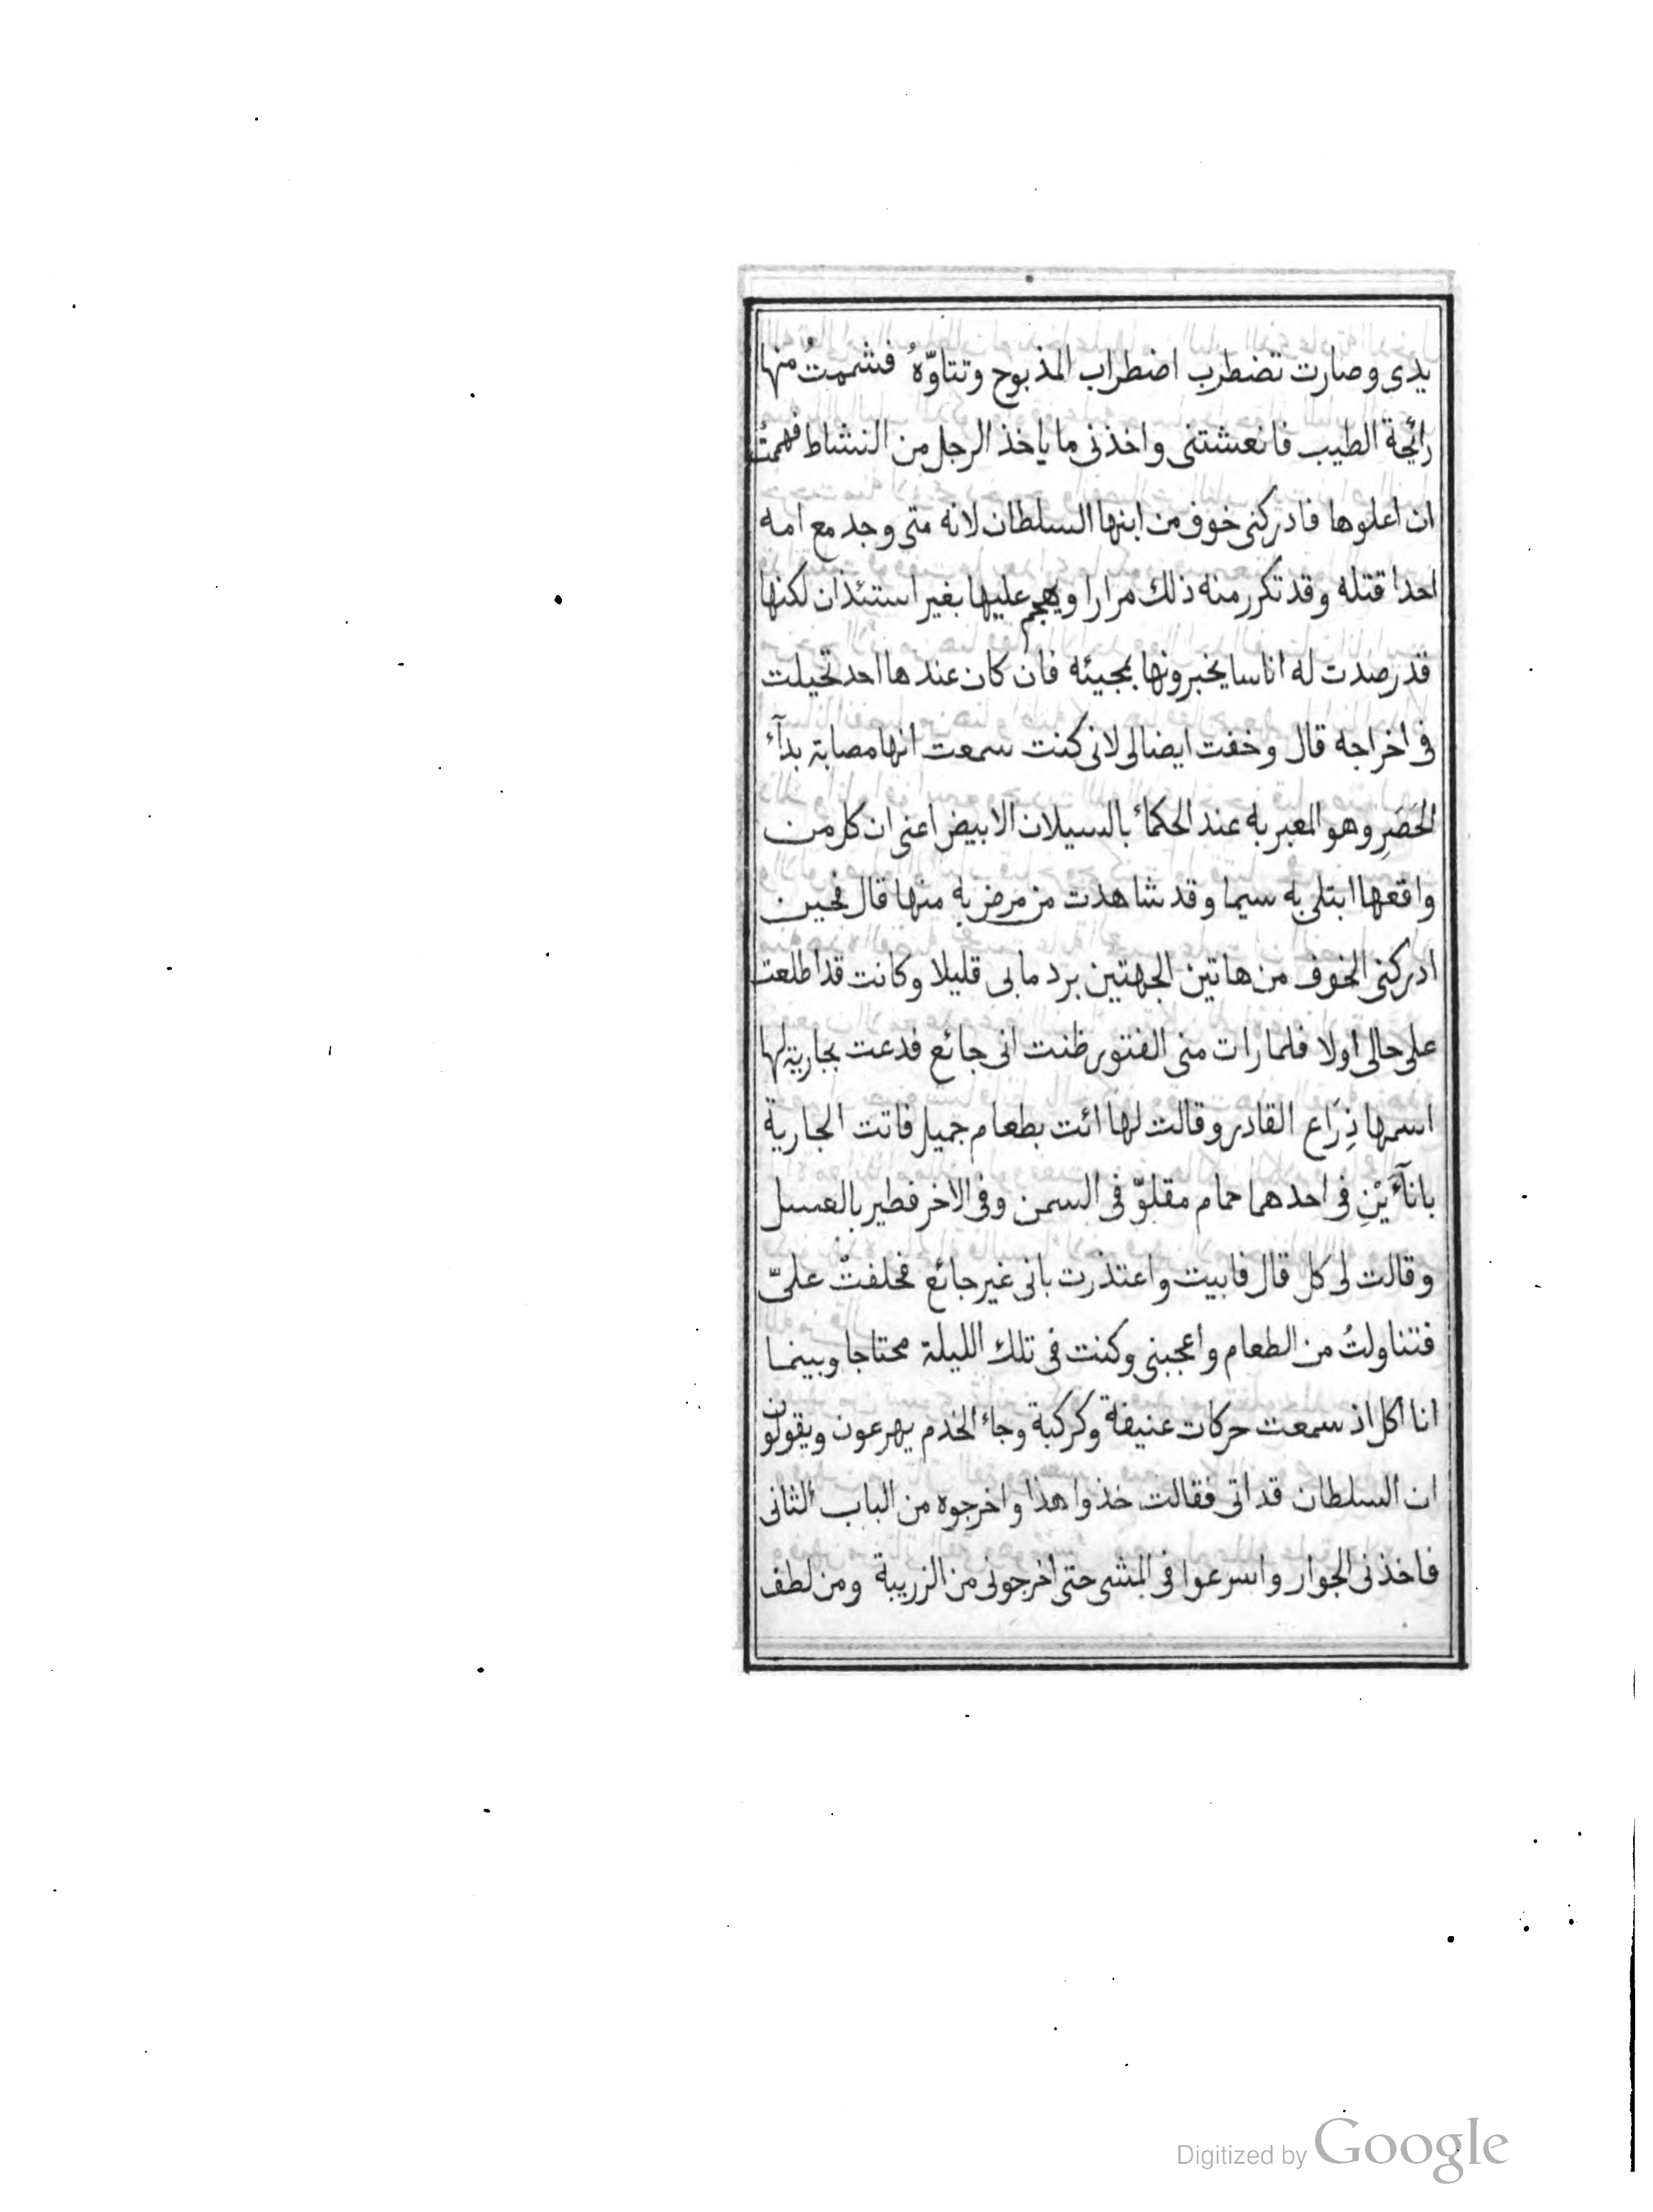 يدى وصارت تضطرب اضطراب المذبوح وتتاوّهُ فشممتُ منها
رائحة الطيب فانعشتنى واخذنى ما ياخذ الرجل من النشاط فهممتُ
ان اعلوها فادركنى خوف من ابنها السلطان لانه متى وجد مع امه
احدا قتله وقد تكرر منه ذلك مرارا ويهجم عليها بغير استئذان لكنها
قد رصدت له اناسا يخبرونها بمجيئه فان كان عندها احد تحيلت
فى اخراجه قال وخفت ايضا لى لانى كنت سمعت انها مصابة بدآء
الحَصَرِ وهو المعبر به عند الحكماء بالسيلان الابيض اعنى ان كل من
واقعها ابتلى به سيما وقد شاهدت من مرض به منها قال فحين
ادركنى الخوف من هاتين الجهتين برد ما بى قليلا وكانت قد اطلعت
على حالى اولا فلما رات منى الفتور ظنت انى جائع فدعت بجارية لها
اسمها ذِرَاع القادر وقالت لها ائت بطعام جميل فاتت الجارية
بانآءَيْنِ فى احدهما حمام مقلوّ فى السمن وفى الاخر فطير بالعسل
وقالت لى كل قال فابيت واعتذرت بانى غير جائع فحلفتْ علىّ
فتناولتُ من الطعام واعجبنى وكنت فى تلك الليلة محتاجا وبينما
انا اكل اذ سمعت حركات عنيفة وكركبة وجاء الخدم يهرعون ويقولون
ان السلطان قد اتى فقالت خذوا هذا واخرجوه من الباب الثانى
فاخذنى الجوار واسرعوا فى المشى حتى اخرجونى من الزريبة ومن لطف
Digitized by Google